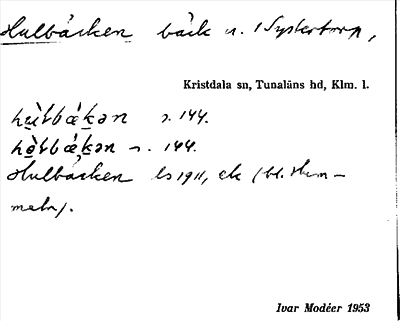 Hulbäcken bäck n. ! Systertorp,
Kristdala sn, Tunaläns hd, Klm. l.
hu̱̇̀lbǽḵən s. 144.
hə̱̀lbǽḵən s. 144.
Hulbäcken ls 1911, ek (bl. Hum-
meln).
Ivar Modéer 1953